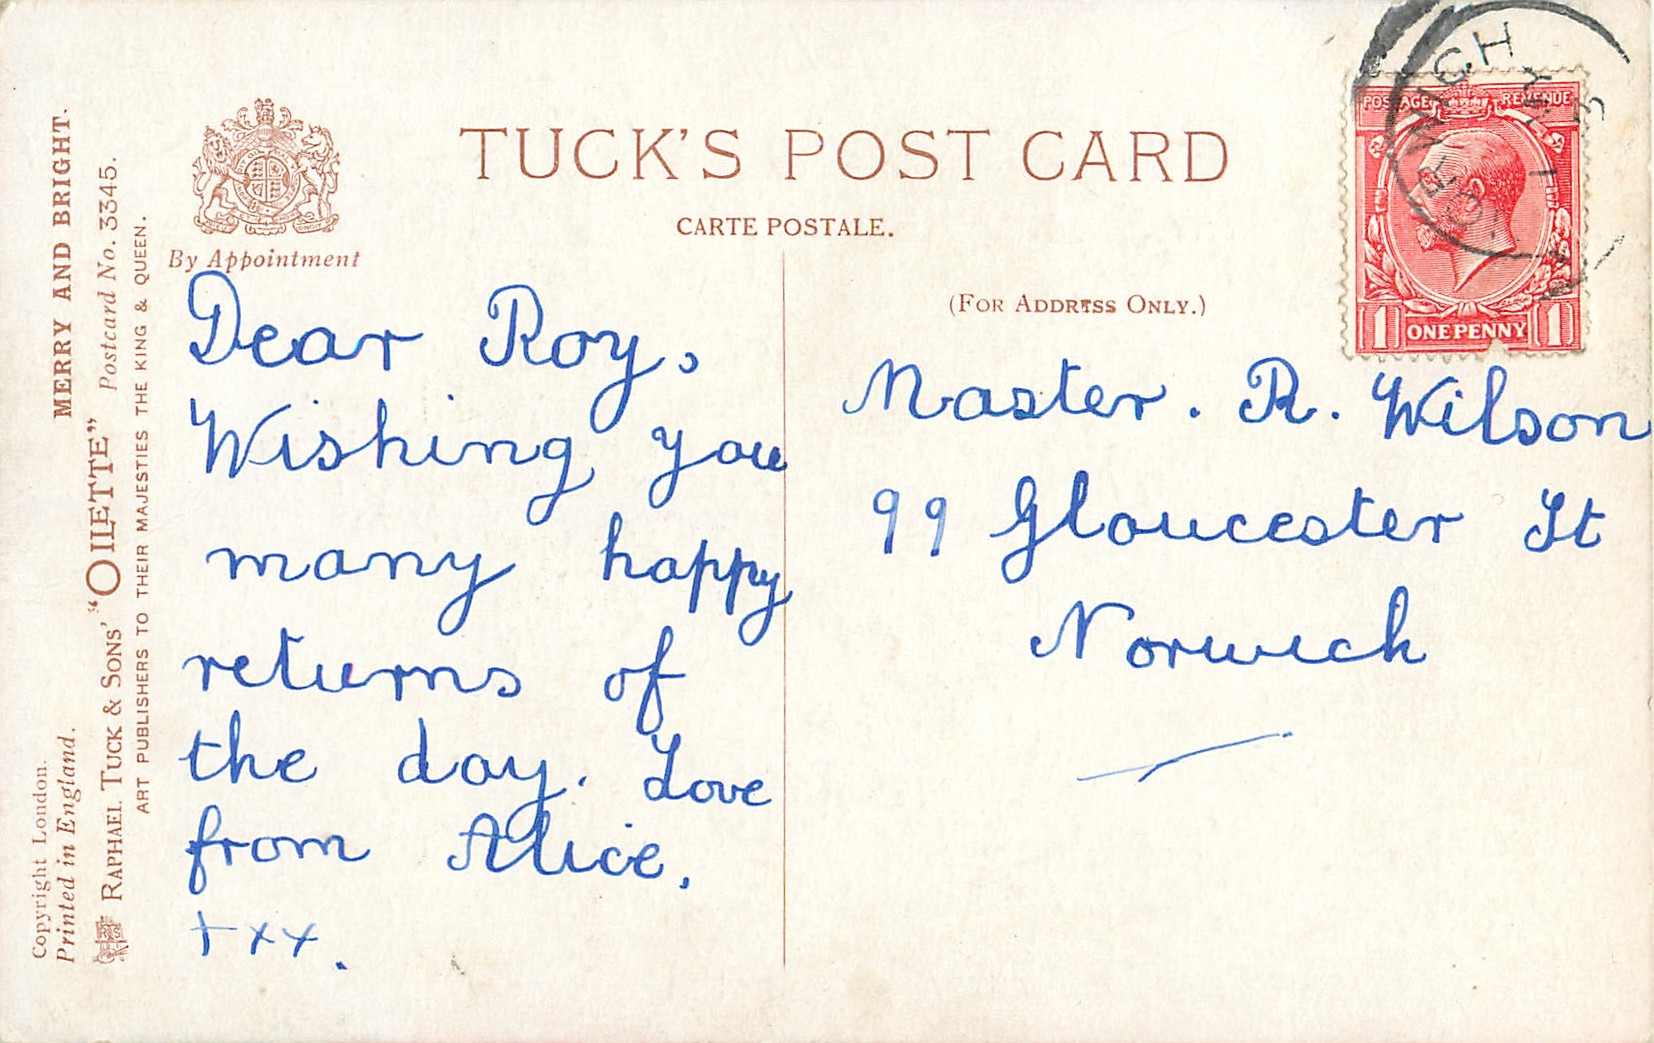 MERRY AND BRIGHT.
Postcard No. 3345.
RAPHAEL TUCK & SONS' "OILETTE"
ART PUBLISHERS TO THEIR MAJESTIES THE KING & QUEEN.
Copyright London.
Printed in England.
By Appointment
TUCK'S POST CARD
CARTE POSTALE.
(FOR ADDRESS ONLY.)
POSTAGE REVENUE
1 ONE PENNY 1
NORWICH
Dear Roy,
Wishing you
many happy
returns of
the day. Love
from Alice.
+xx.
Master. R. Wilson
99 Gloucester St
Norwich